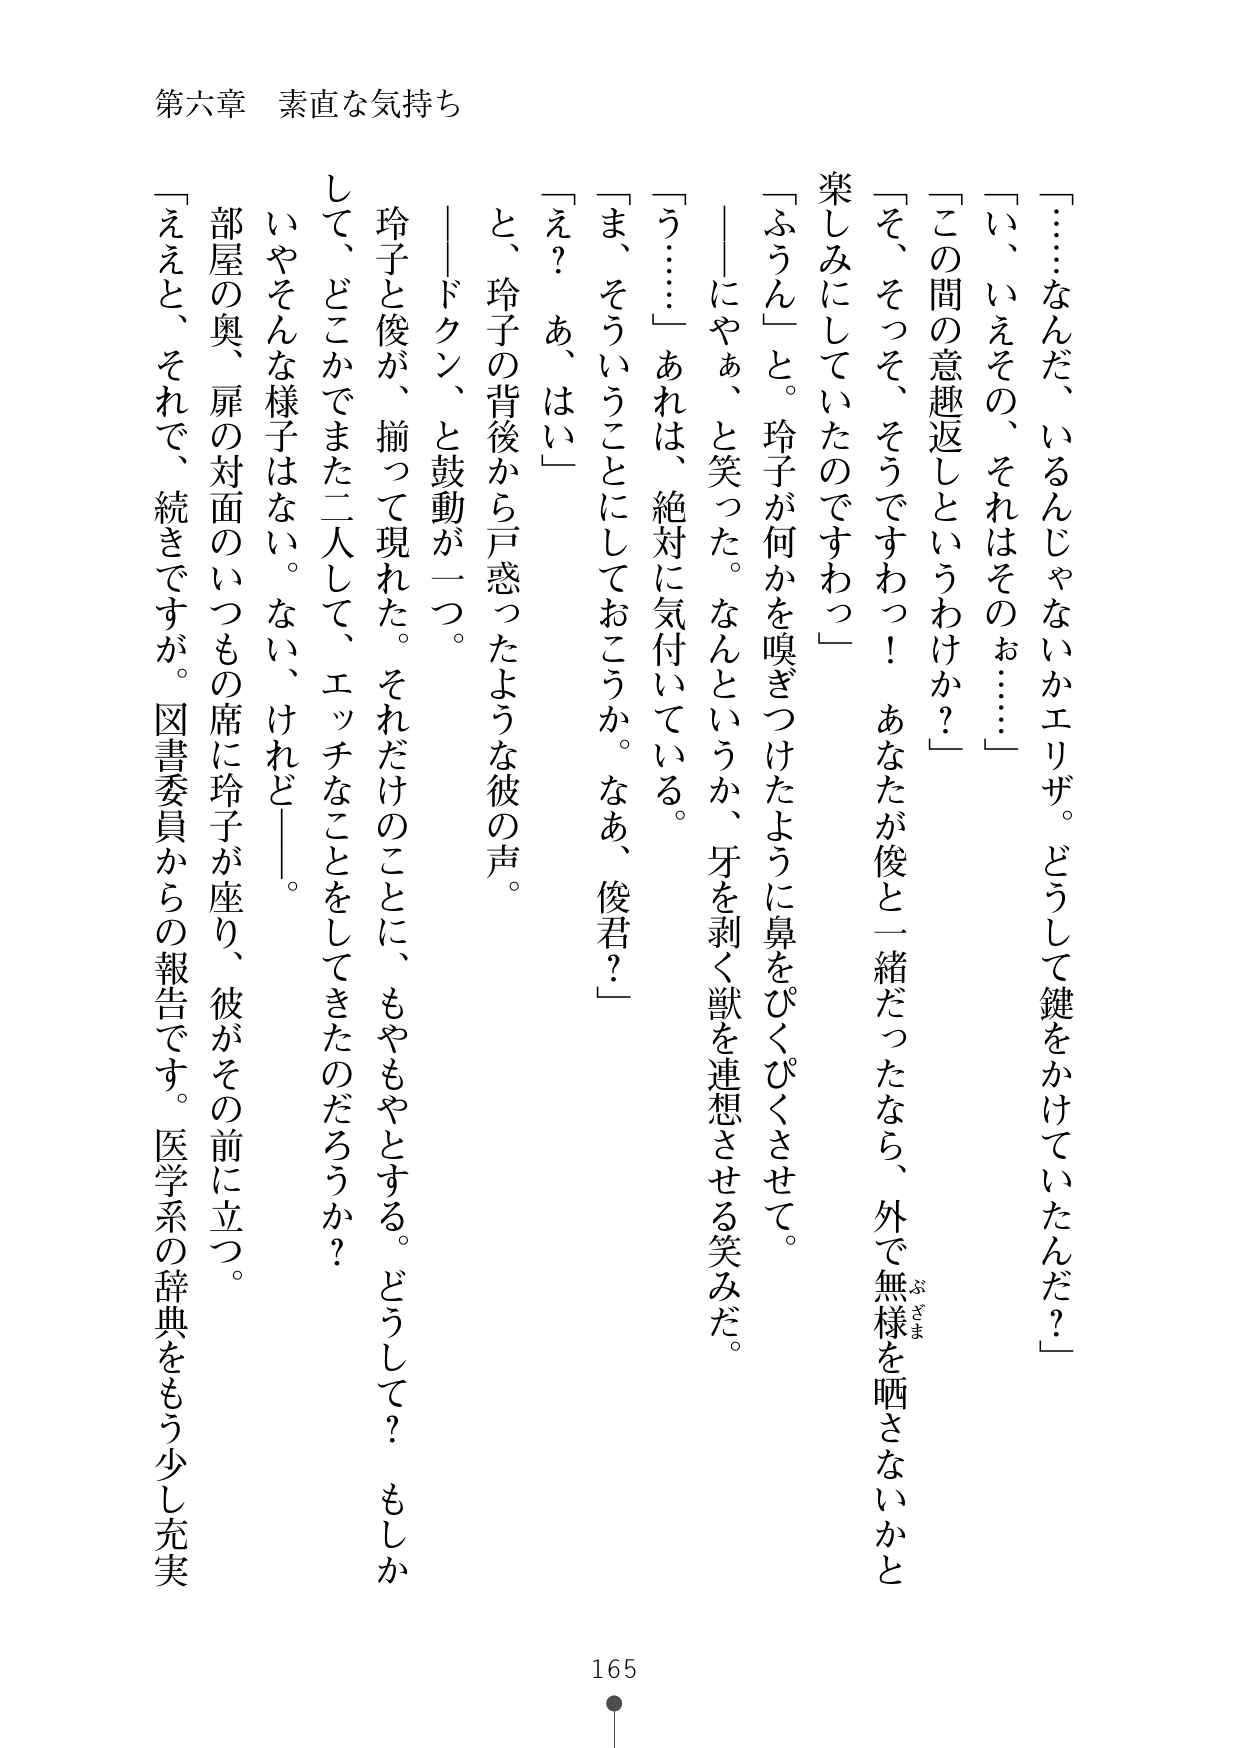 第六章　素直な気持ち
「……なんだ、いるんじゃないかエリザ。どうして鍵をかけていたんだ？」
「い、いえその、それはそのぉ……」
「この間の意趣返しというわけか？」
「そ、そっそ、そうですわっ！　あなたが俊と一緒だったなら、外で無様ぶざまを晒さないかと
楽しみにしていたのですわっ」
「ふうん」と。玲子が何かを嗅ぎつけたように鼻をぴくぴくさせて。
――にやぁ、と笑った。なんというか、牙を剥く獣を連想させる笑みだ。
「う……」あれは、絶対に気付いている。
「ま、そういうことにしておこうか。なあ、俊君？」
「え？　あ、はい」
と、玲子の背後から戸惑ったような彼の声。
――ドクン、と鼓動が一つ。
玲子と俊が、揃って現れた。それだけのことに、もやもやとする。どうして？　もしか
して、どこかでまた二人して、エッチなことをしてきたのだろうか？
いやそんな様子はない。ない、けれど――。
部屋の奥、扉の対面のいつもの席に玲子が座り、彼がその前に立つ。
「ええと、それで、続きですが。図書委員からの報告です。医学系の辞典をもう少し充実
165